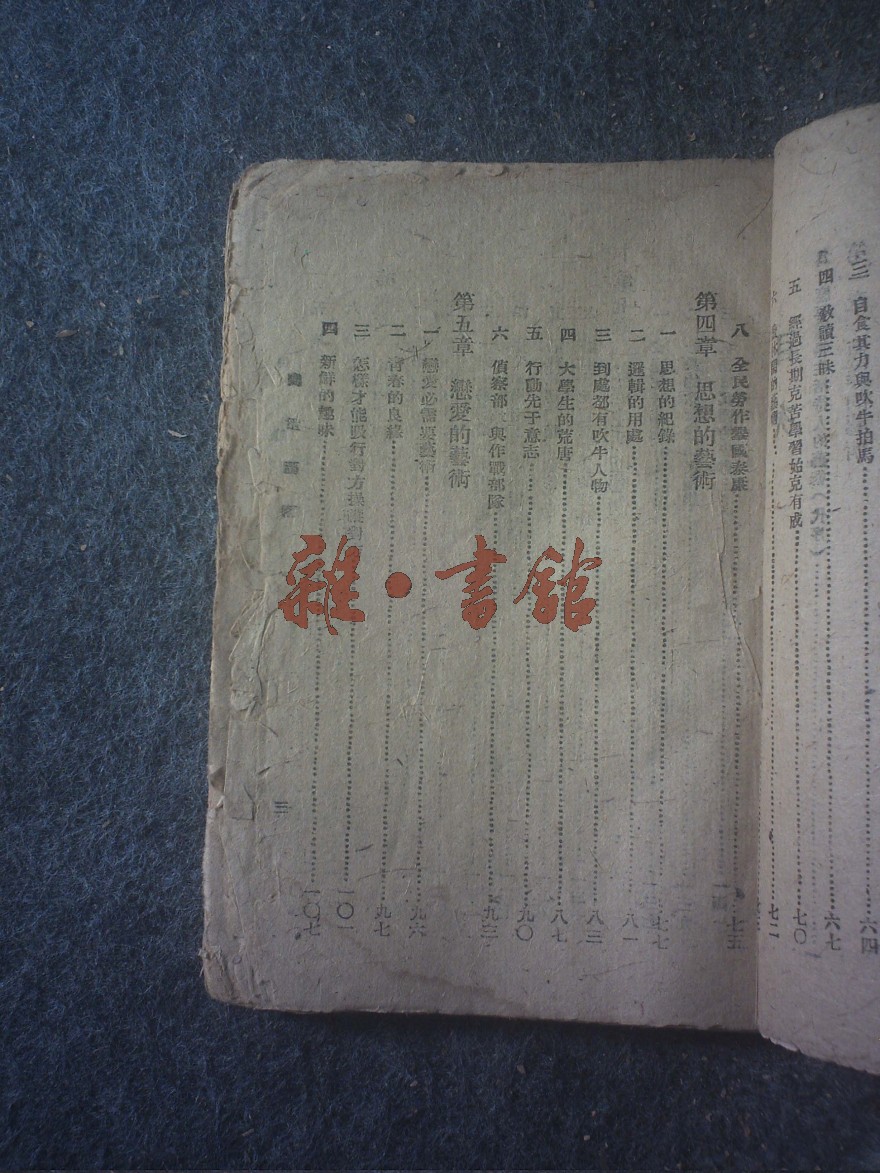 三 自食其力與吹牛拍馬……六四
四 教讀三昧……六七
五 經過長期克苦學習始克有成……七〇
七二
八 全民勞作舉國泰康……七五
第四章 思想的藝術
一 思想的紀錄……七七
二 邏輯的用處……八一
三 到處都有吹牛人物……八三
四 大學生的荒唐……八七
五 行動先于意志……九〇
六 偵察部隊與作戰部隊……九三
第五章 戀愛的藝術
一 戀愛必需要藝術……九六
二 青春的良緣……九七
三 怎樣才能……一〇一
四 新鮮的趣味……一〇七
三
雜·書館